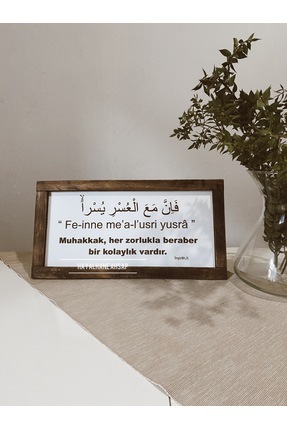 فَاِنَّ مَعَ الْعُسْرِ يُسْراًۙ
“ Fe-inne me’a-l’usri yusrâ ”
Muhakkak, her zorlukla beraber
bir kolaylık vardır.